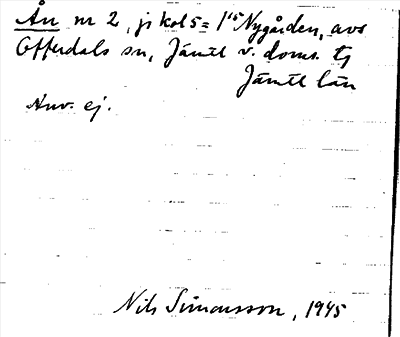 Ån nr 2, jr kol 5 = 1¹⁵ Nygården, avs
Offerdals sn, Jämtl v. doms. tj
Jämtl län
Anv. ej.
Nils Simonsson, 1945